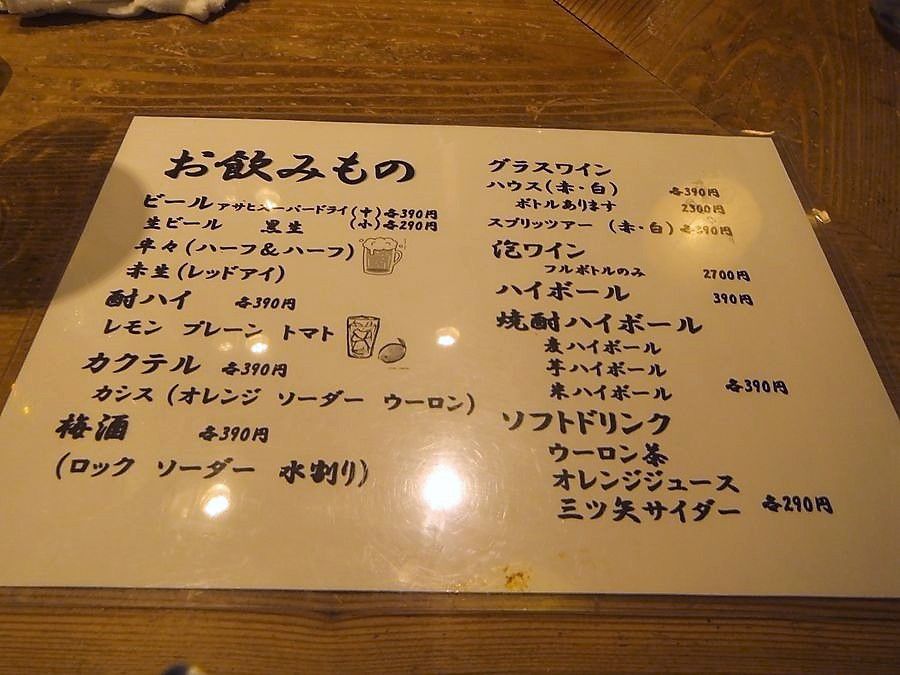 お飲みもの
ビール アサヒスーパードライ (中)各390円
生ビール 黒生 (小)各290円
半々(ハーフ&ハーフ)
赤生(レッドアイ)
酎ハイ 各390円
レモン プレーン トマト
カクテル 各390円
カシス(オレンジ ソーダー ウーロン)
梅酒 各390円
(ロック ソーダー 水割り)
グラスワイン
ハウス(赤・白) 各390円
ボトルあります 2300円
スプリッツアー (赤・白) 各390円
泡ワイン
フルボトルのみ 2700円
ハイボール 390円
焼酎ハイボール
麦ハイボール
芋ハイボール
米ハイボール 各390円
ソフトドリンク
ウーロン茶
オレンジジュース
三ツ矢サイダー 各290円